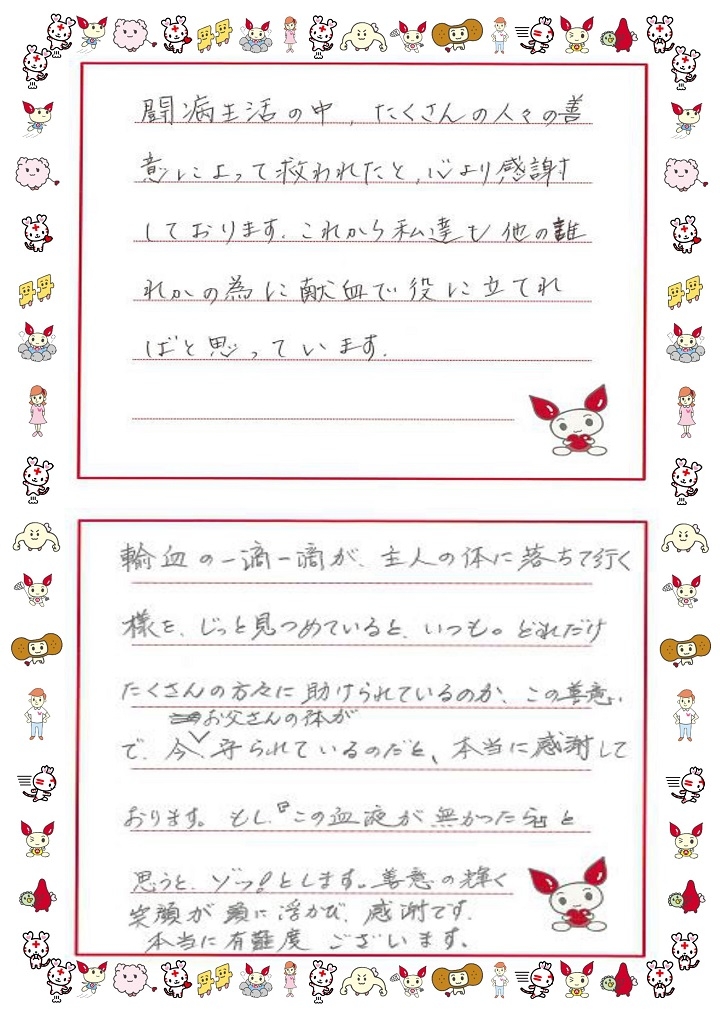 闘病生活の中、たくさんの人々の善
意によって救われたと、心より感謝
しております。これから私達も他の誰
れかの為に献血で役に立てれ
ばと思っています。
輸血の一滴一滴が、主人の体に落ちて行く
様を、じっと見つめていると、いつも。どれだけ
たくさんの方々に助けられているのか、この善意、
お父さんの体が
で、今、守られているのだと、本当に感謝して
おります。もし、『この血液が無かったら』と
思うと、ゾッ!とします。善意の輝く
笑顔が 浮かび、感謝です。
本当に有難度 ございます。